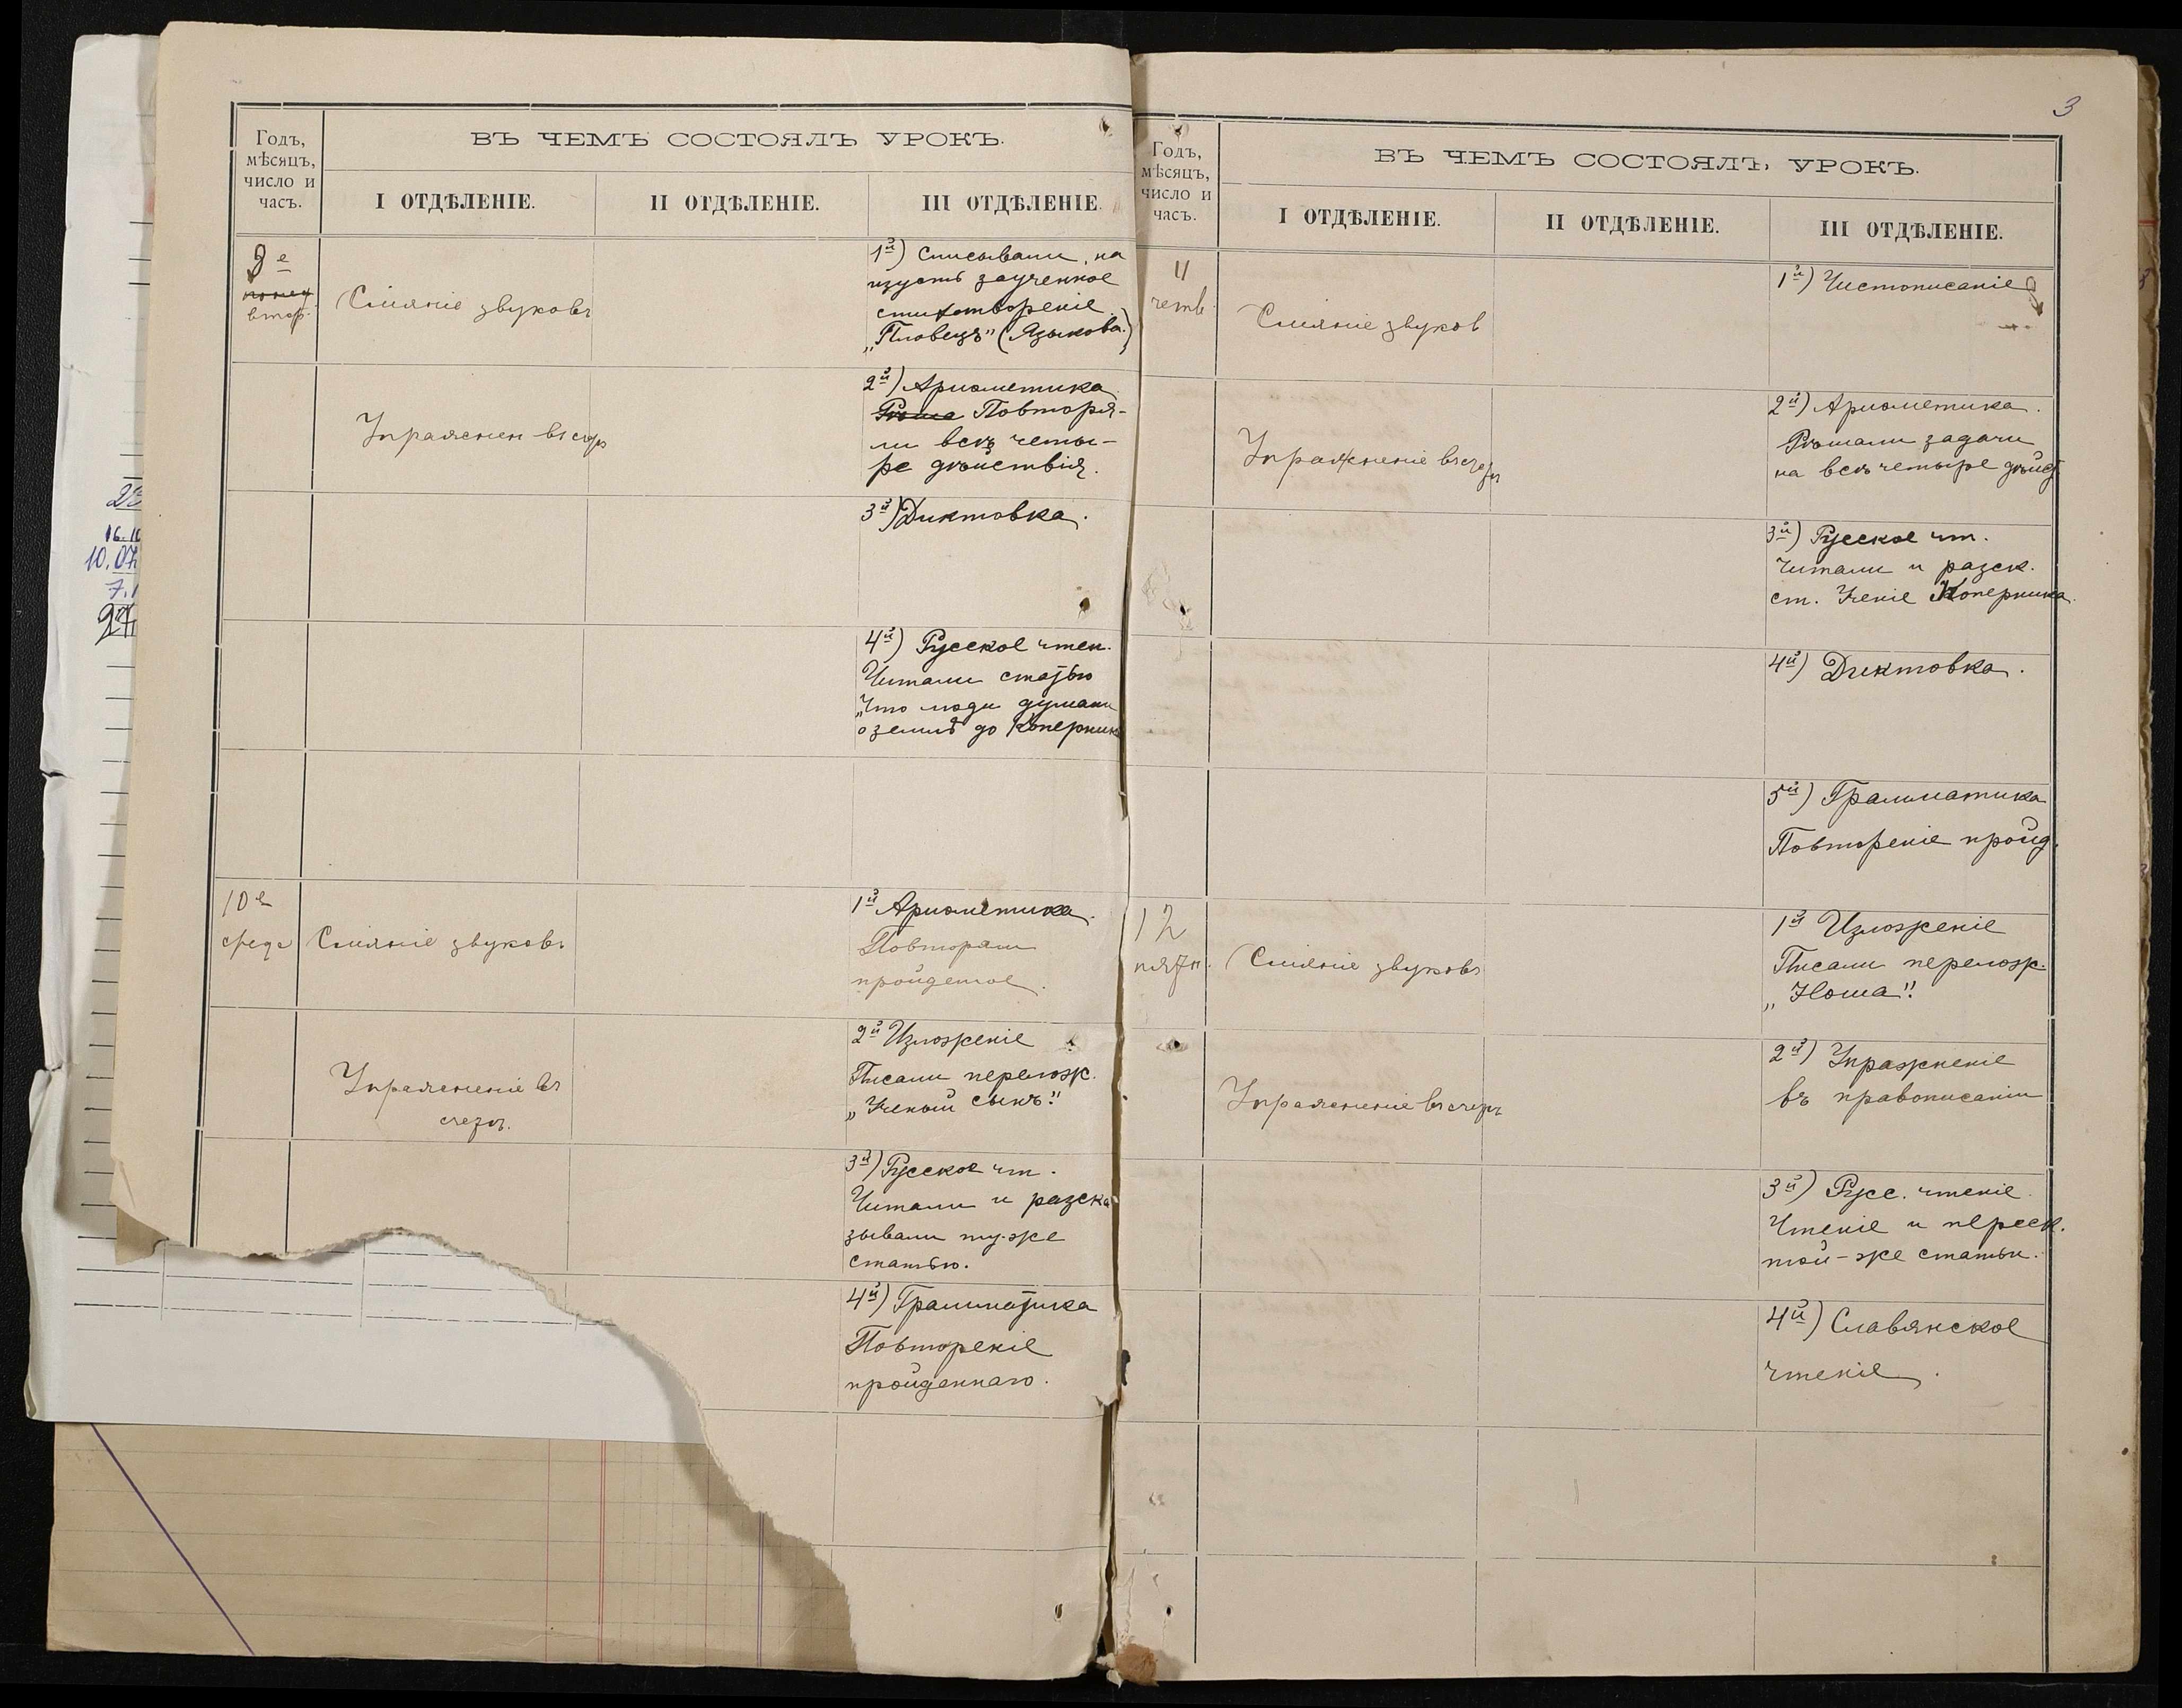 Годъ,
мѣсяцъ,
число и
часъ.
ВЪ ЧЕМЪ СОСТОЯЛЪ УРОКЪ.
I ОТДѢЛЕНІЕ.
II ОТДѢЛЕНІЕ.
III ОТДѢЛЕНІЕ.
9е
понед
втор.
Сліяніе звуковъ
1й) Списывали, на
изусть заученное
стихотвореніе
„Пловецъ" (Языкова.)
Упражнен въ счетѣ
2й) Ариѳметика
Рѣша Повторя-
ли всѣ четы-
ре дѣйствія.
3й) Диктовка.
4й) Русское чтен.
Читали статью
„Что люди думали
о землѣ до Коперник
10е
среда
Сліяніе звуковъ.
1й Ариѳметика.
Повторяли
пройденое.
Упражненіе въ
счетѣ.
2й Изложеніе
Писали перелож.
„Ученый сынъ."
3й) Русское чт.
Читали и разска
зывали ту-же
статью.
4й) Грамматика
Повтореніе
пройденнаго.
3
Годъ,
мѣсяцъ,
число и
часъ.
ВЪ ЧЕМЪ СОСТОЯЛЪ УРОКЪ.
I ОТДѢЛЕНІЕ.
II ОТДѢЛЕНІЕ.
III ОТДѢЛЕНІЕ.
11
четв.
Сліяніе звуков
1й) Чистописаніе
Упражненіе въ счетѣ
2й) Ариѳметика.
Рѣшали задачи
на всѣ четыре дѣйст
3й) Русское чт.
Читали и разск.
ст. Ученіе Коперника.
4й) Диктовка.
5й) Грамматика
Повтореніе пройд.
12
пятн.
Сліяніе звуковъ
1й Изложеніе
Писали перелож.
„Ноша".
Упражненіе въ счетѣ
2й) Упражненіе
въ правописаніи
3й) Русс. чтеніе.
Чтеніе и переск.
той-же статьи.
4й) Славянское
чтеніе.
16.10
10.07
7.1
27